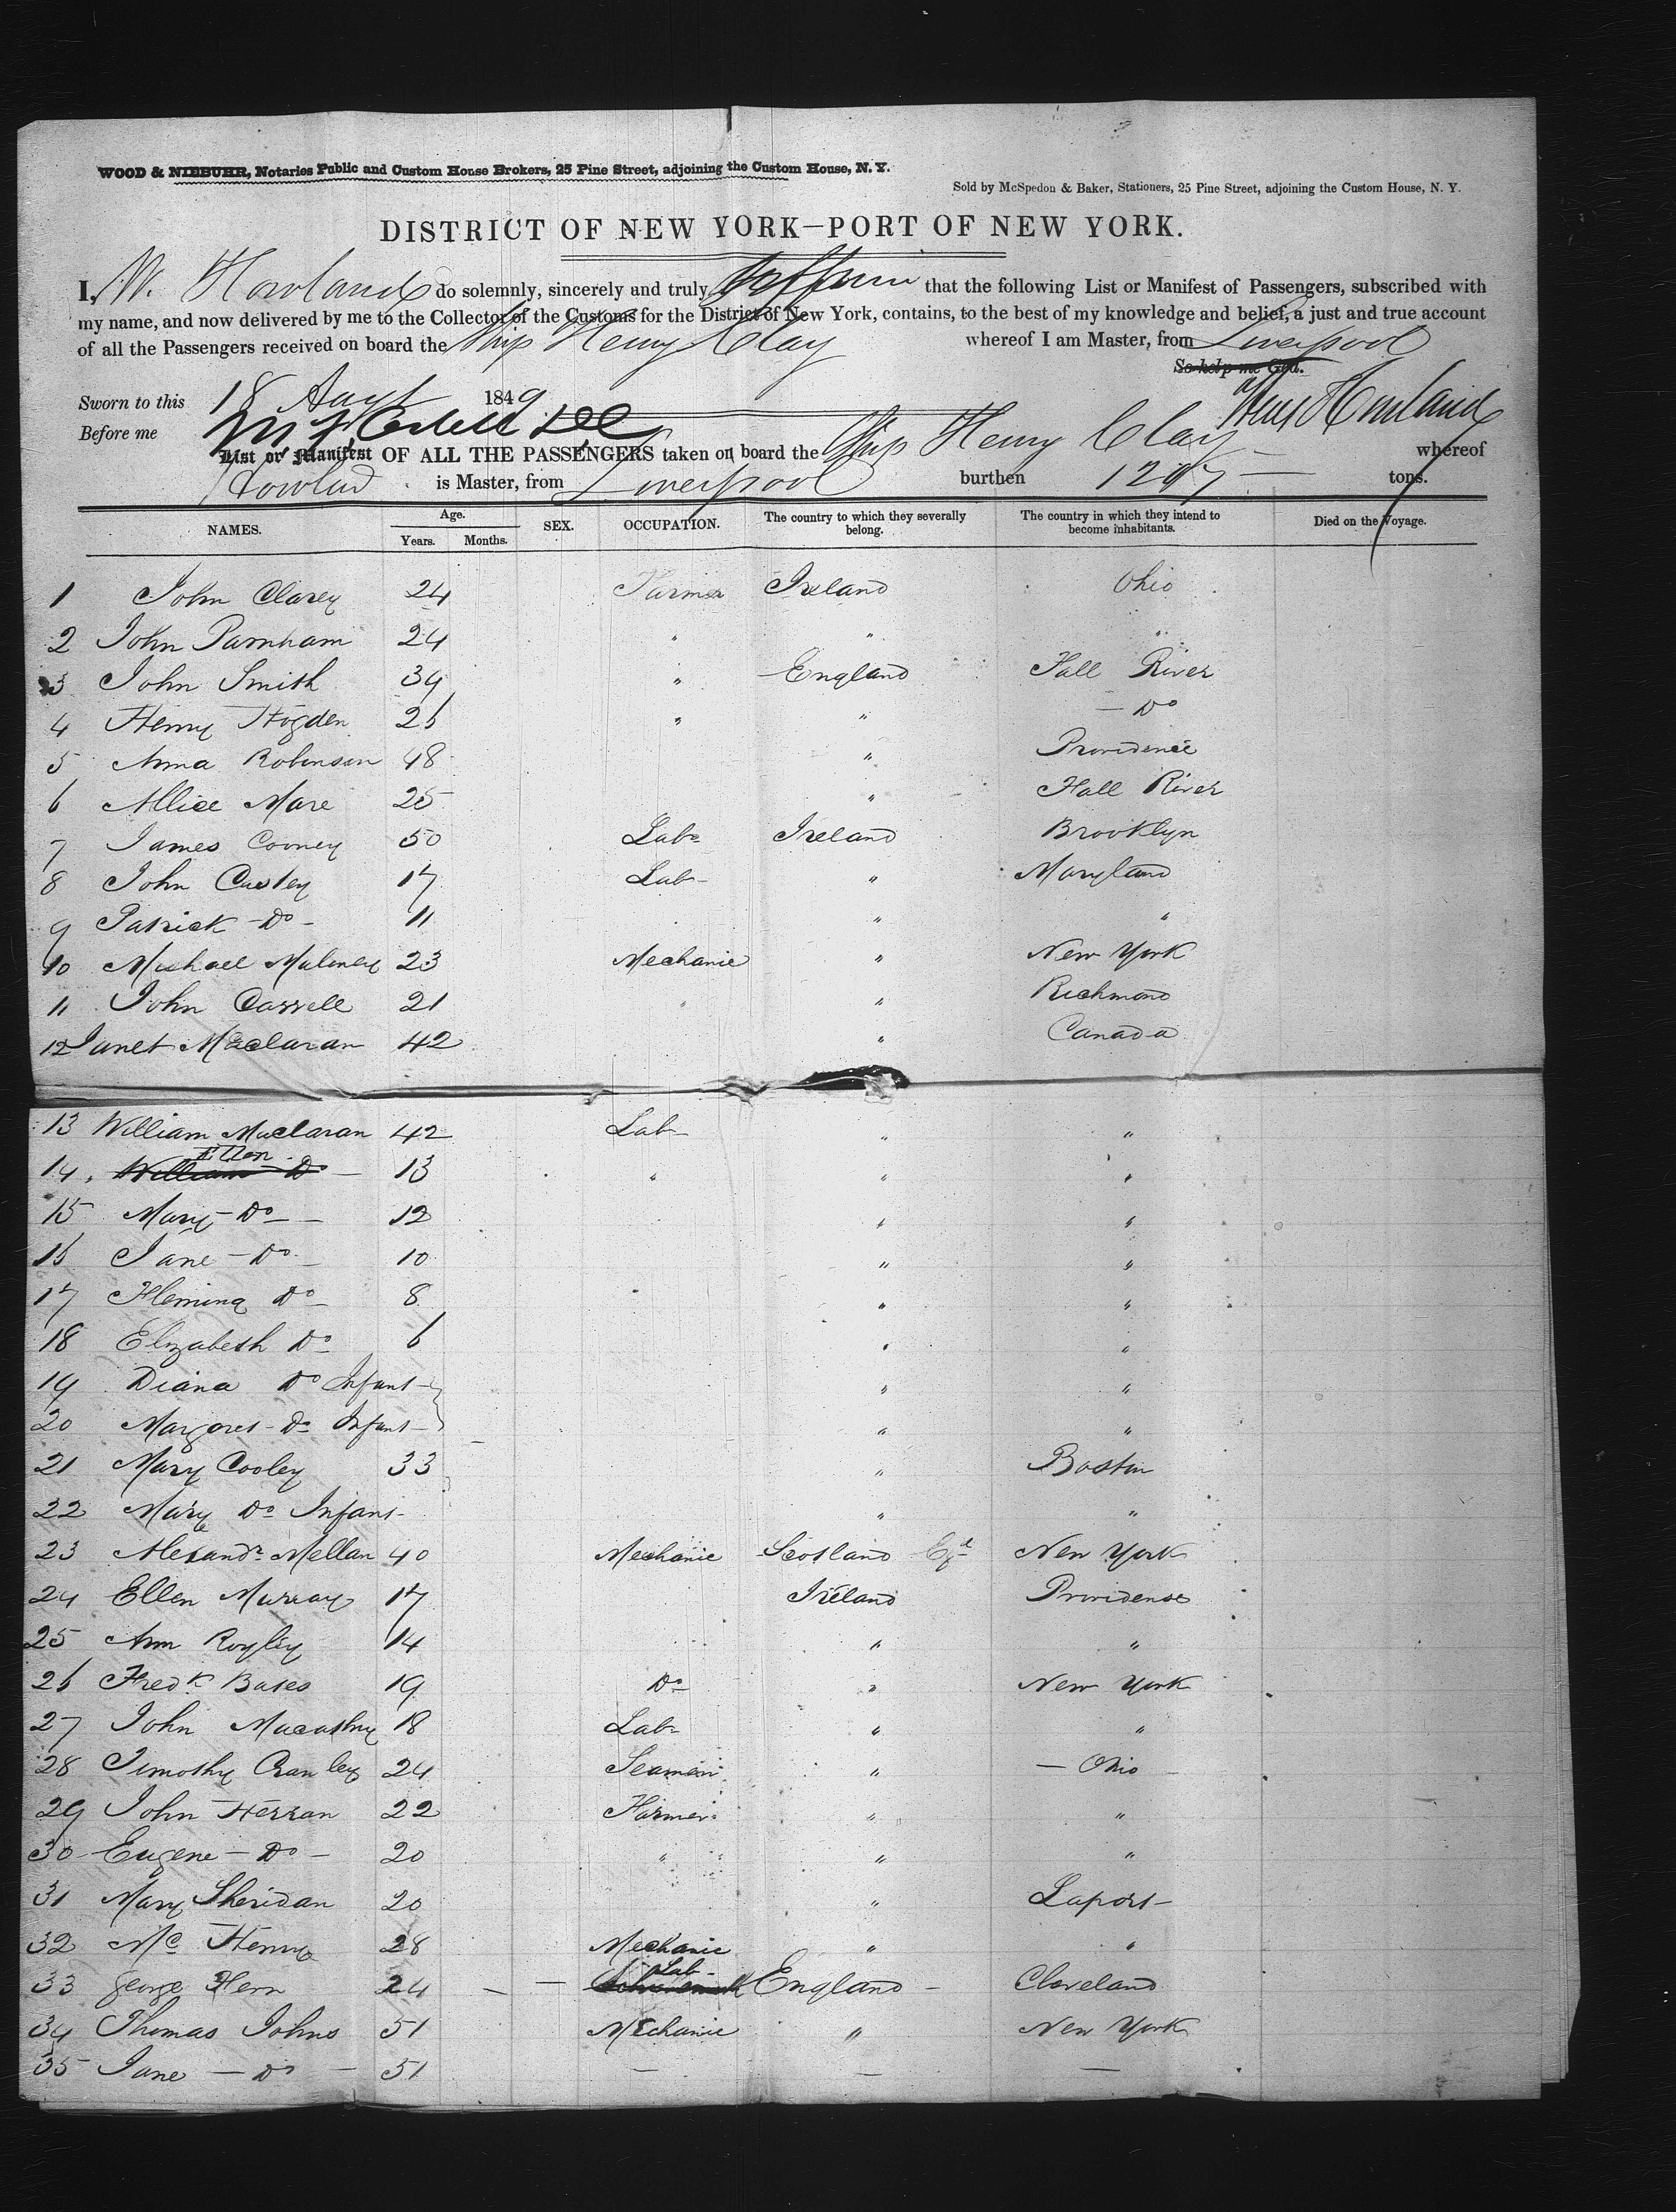 WOOD & NIEBUHR, Notaries Public and Custom House Brokers, 25 Pine Street, adjoining the Custom House, N. Y.
Sold by McSpedon & Baker, Stationers, 25 Pine Street, adjoining the Custom House, N. Y.
DISTRICT OF NEW YORK—PORT OF NEW YORK.
I, W. Howland do solemnly, sincerely and truly affirm that the following List or Manifest of Passengers, subscribed with
my name, and now delivered by me to the Collector of the Customs for the District of New York, contains, to the best of my knowledge and belief, a just and true account
of all the Passengers received on board the Ship Henry Clay whereof I am Master, from Liverpool
So help me God.
Sworn to this 18 Augt 1849
Before me Howland
List or Manifest OF ALL THE PASSENGERS taken on board the Ship Henry Clay whereof
Howland is Master, from Liverpool burthen 1207 tons.
NAMES. Age. Years. Months. SEX. OCCUPATION. The country to which they severally belong. The country in which they intend to become inhabitants. Died on the Voyage.
1 John Clarey 24 Farmer Ireland Ohio
2 John Parnham 24 " " "
3 John Smith 34 " England Fall River
4 Henry Hogden 26 " " — Do
5 Anna Robinson 48 " Providence
6 Allice Mare 25 " Fall River
7 James Cooney 50 Labr Ireland Brooklyn
8 John Castey 17 Lab " Maryland
9 Patrick — Do — 11 " "
10 Michael Muleney 23 Mechanic " New York
11 John Carrell 21 " " Richmond
12 Janet Maclaran 42 " Canada
13 William Maclaran 42 Lab " "
14 Ellen William Do — 13 " " "
15 Mary — Do — 12 " "
16 Jane — Do — 10 " "
17 Fleming Do — 8 " "
18 Elizabeth Do 6 " "
19 Diana Do Infant " "
20 Margaret Do Infant " "
21 Mary Cooley 33 " Boston
22 Mary Do Infant " "
23 Alexandr Mellan 40 Mechanic Scotland New York
24 Ellen Murray 17 Ireland Providense
25 Ann Royley 14 " "
26 Fredk Bates 19 Do " New York
27 John 18 Lab " "
28 Timothy 24 Seaman " — Ohio
29 John Herran 22 Farmer " "
30 Eugene — Do — 20 " " "
31 Mary Sheridan 20 " Laport
32 Mc Henry 28 Mechanic " "
33 George Hern 24 — — Lab England — Cleveland
34 Thomas Johns 51 Mechanic " New York
35 Jane — Do — 51 — — —